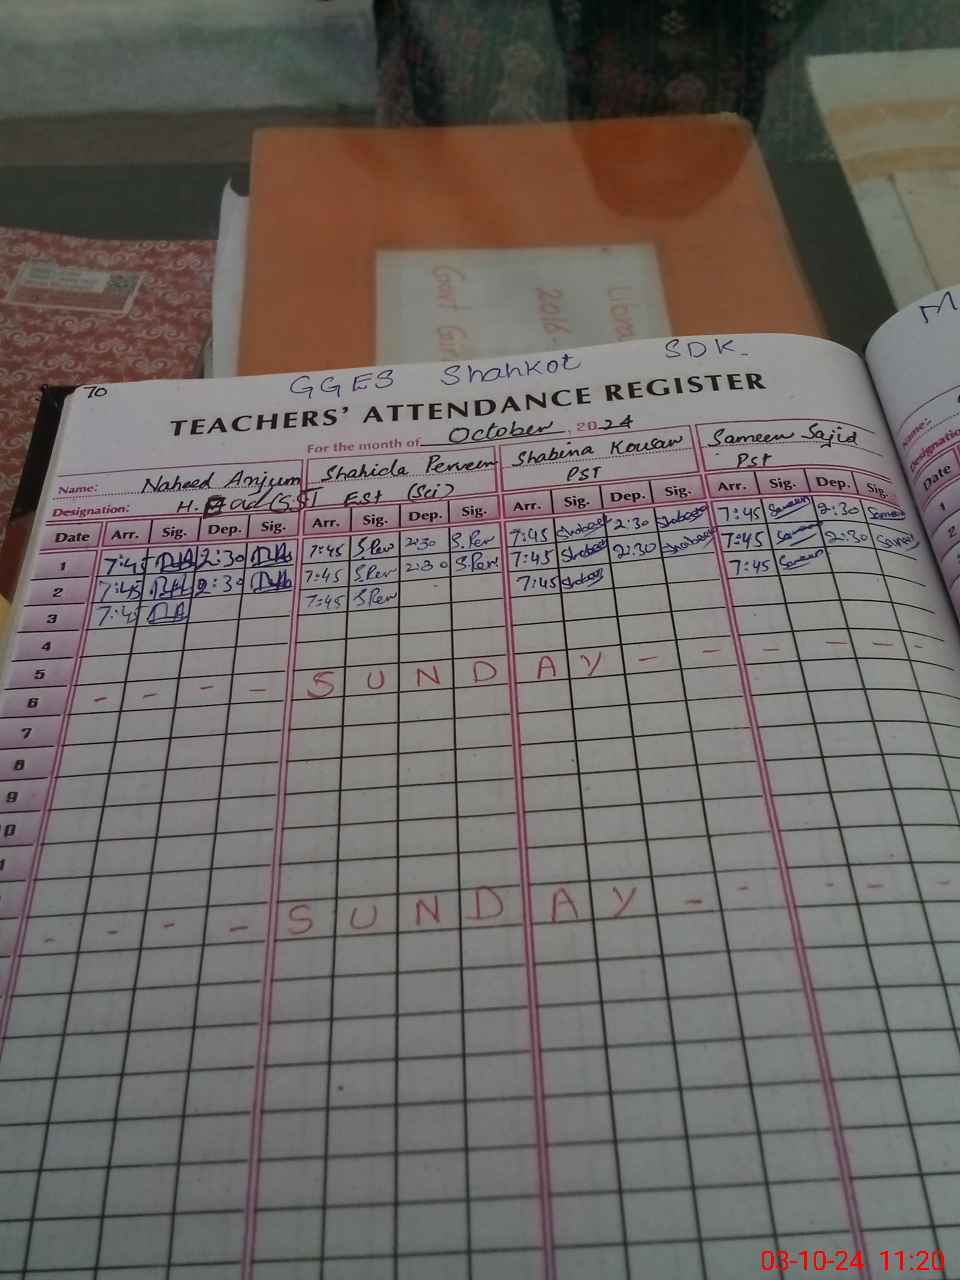 Libra
2016-
Govt Gir
M
70
GGES Shahkot SDK.
TEACHERS' ATTENDANCE REGISTER
For the month of October, 2024
Name: Naheed Anjum Shahida Perveen Shabina Kousar Sameen Sajid
Designation: H. (SST EST (Sci) PST PST
Date Arr. Sig. Dep. Sig. Arr. Sig. Dep. Sig. Arr. Sig. Dep. Sig. Arr. Sig. Dep. Sig.
1 7:45 2:30 7:45 S.Per 2:30 S.Per 7:45 Shabeena 2:30 Shabeena 7:45 Sameen 2:30 Sameen
2 7:45 2:30 7:45 S.Per 2:30 S.Per 7:45 Shabeena 2:30 Shabeena 7:45 Sameen 2:30 Sameen
3 7:45 7:45 S.Per 7:45 Shabeena 7:45 Sameen
4
5
6 - - - - S U N D A Y - - - - - -
7
8
9
0
1
- - - - S U N D A Y - - - - -
Name:
Designation
Date
1
2
03-10-24 11:20